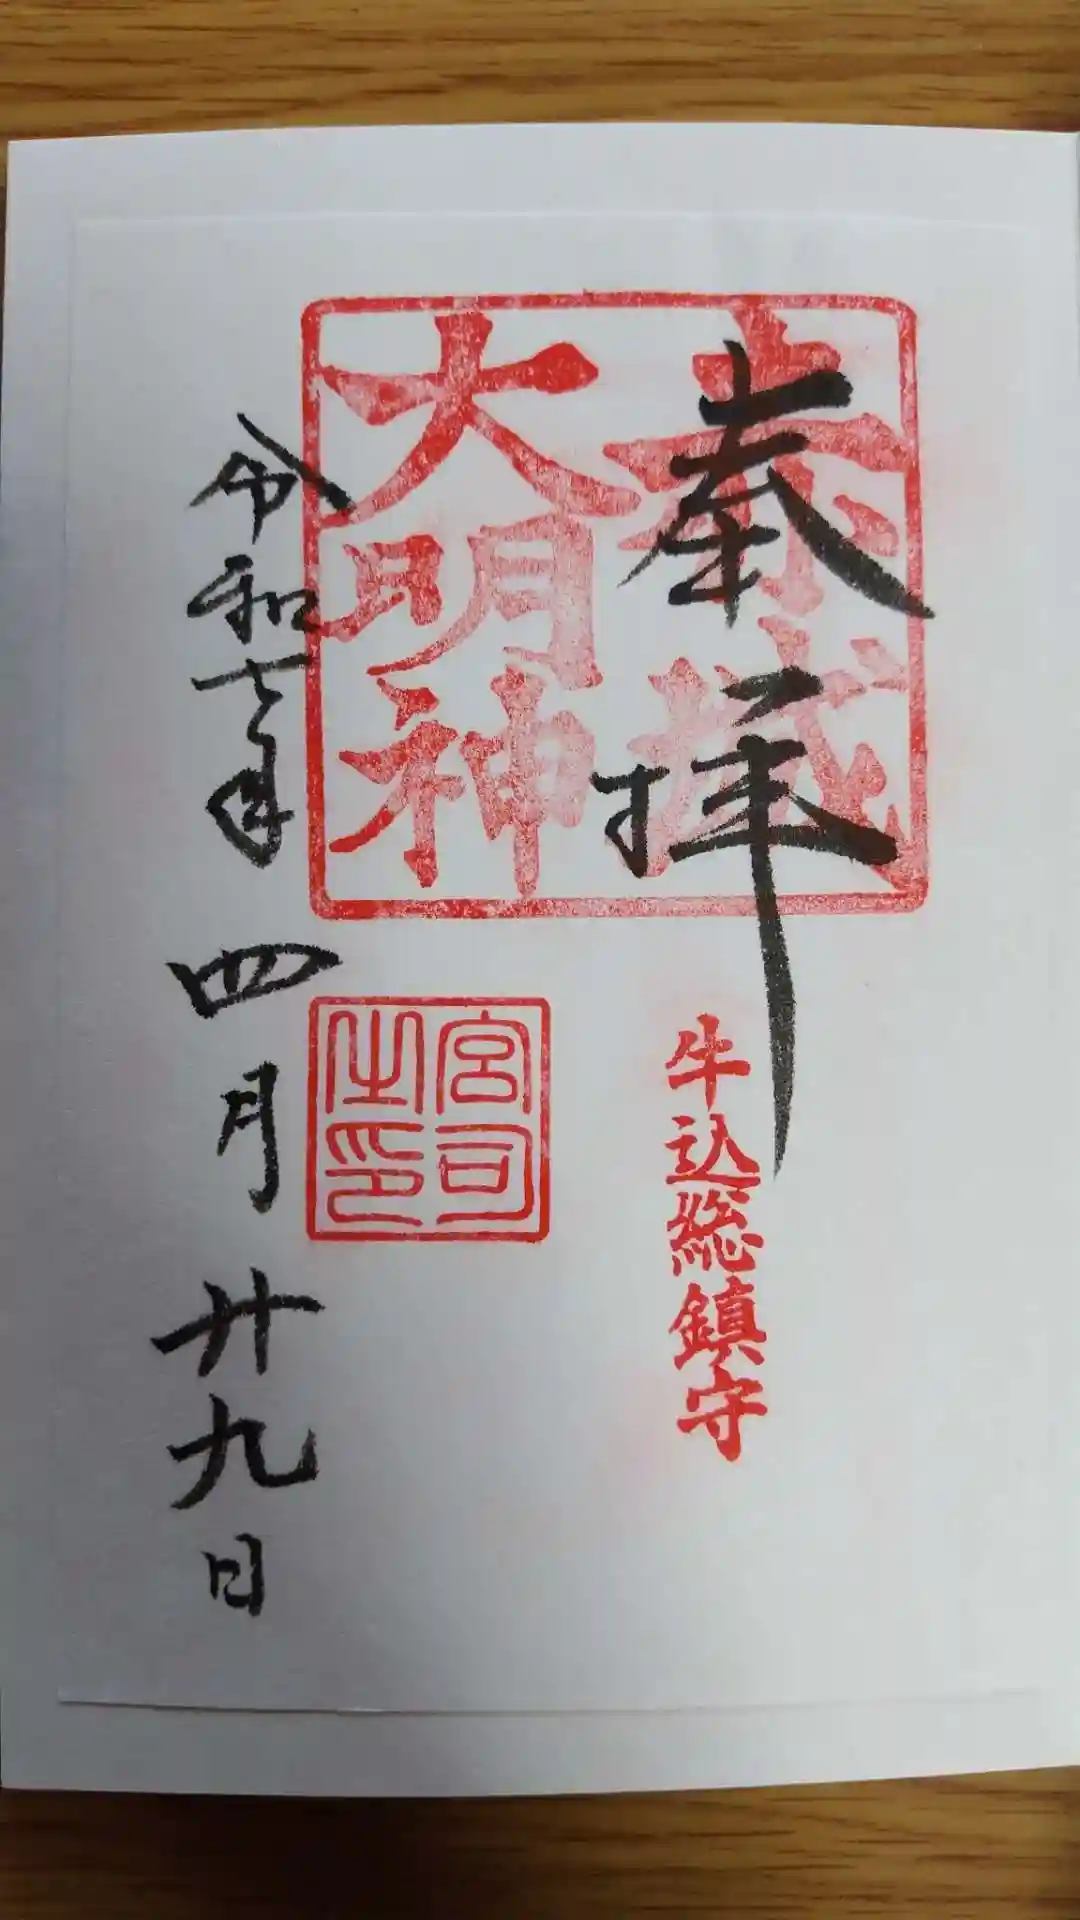 奉拝
赤城
大明神
牛込総鎮守
宮司
之印
令和七年四月廿九日